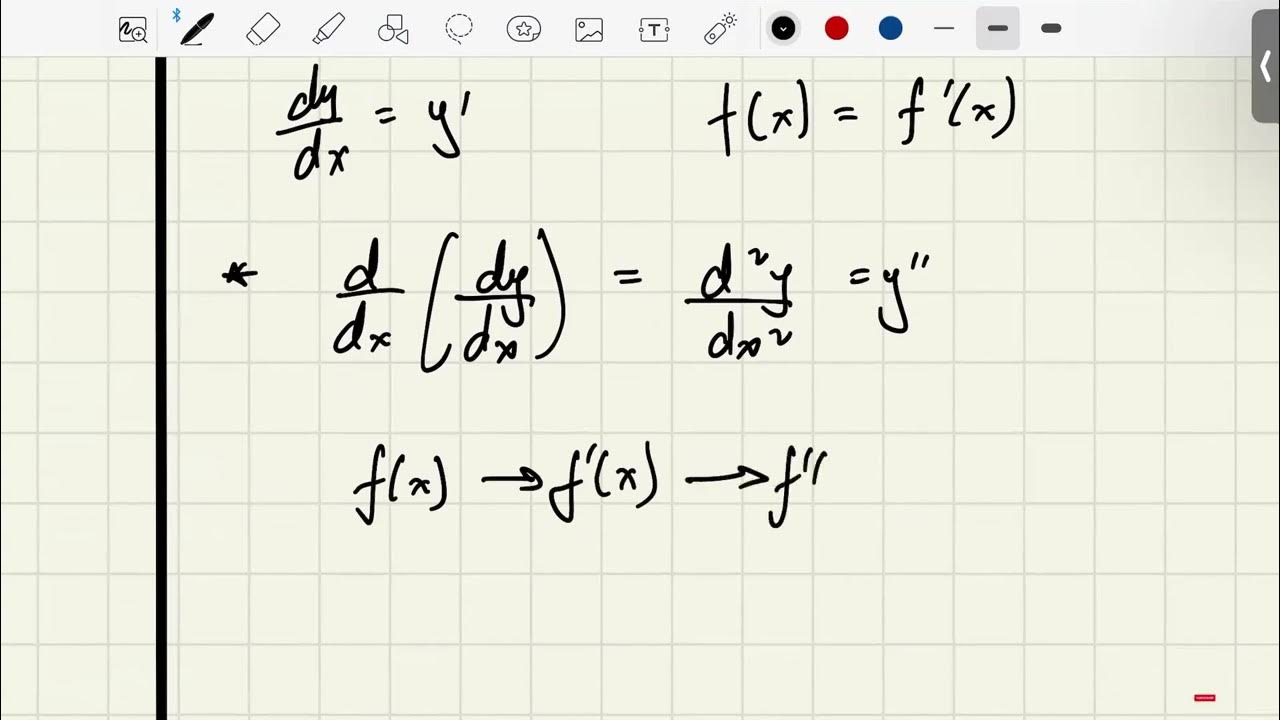 dy/dx = y' f(x) = f'(x)
* d/dx (dy/dx) = d²y/dx² = y''
f(x) → f'(x) → f''